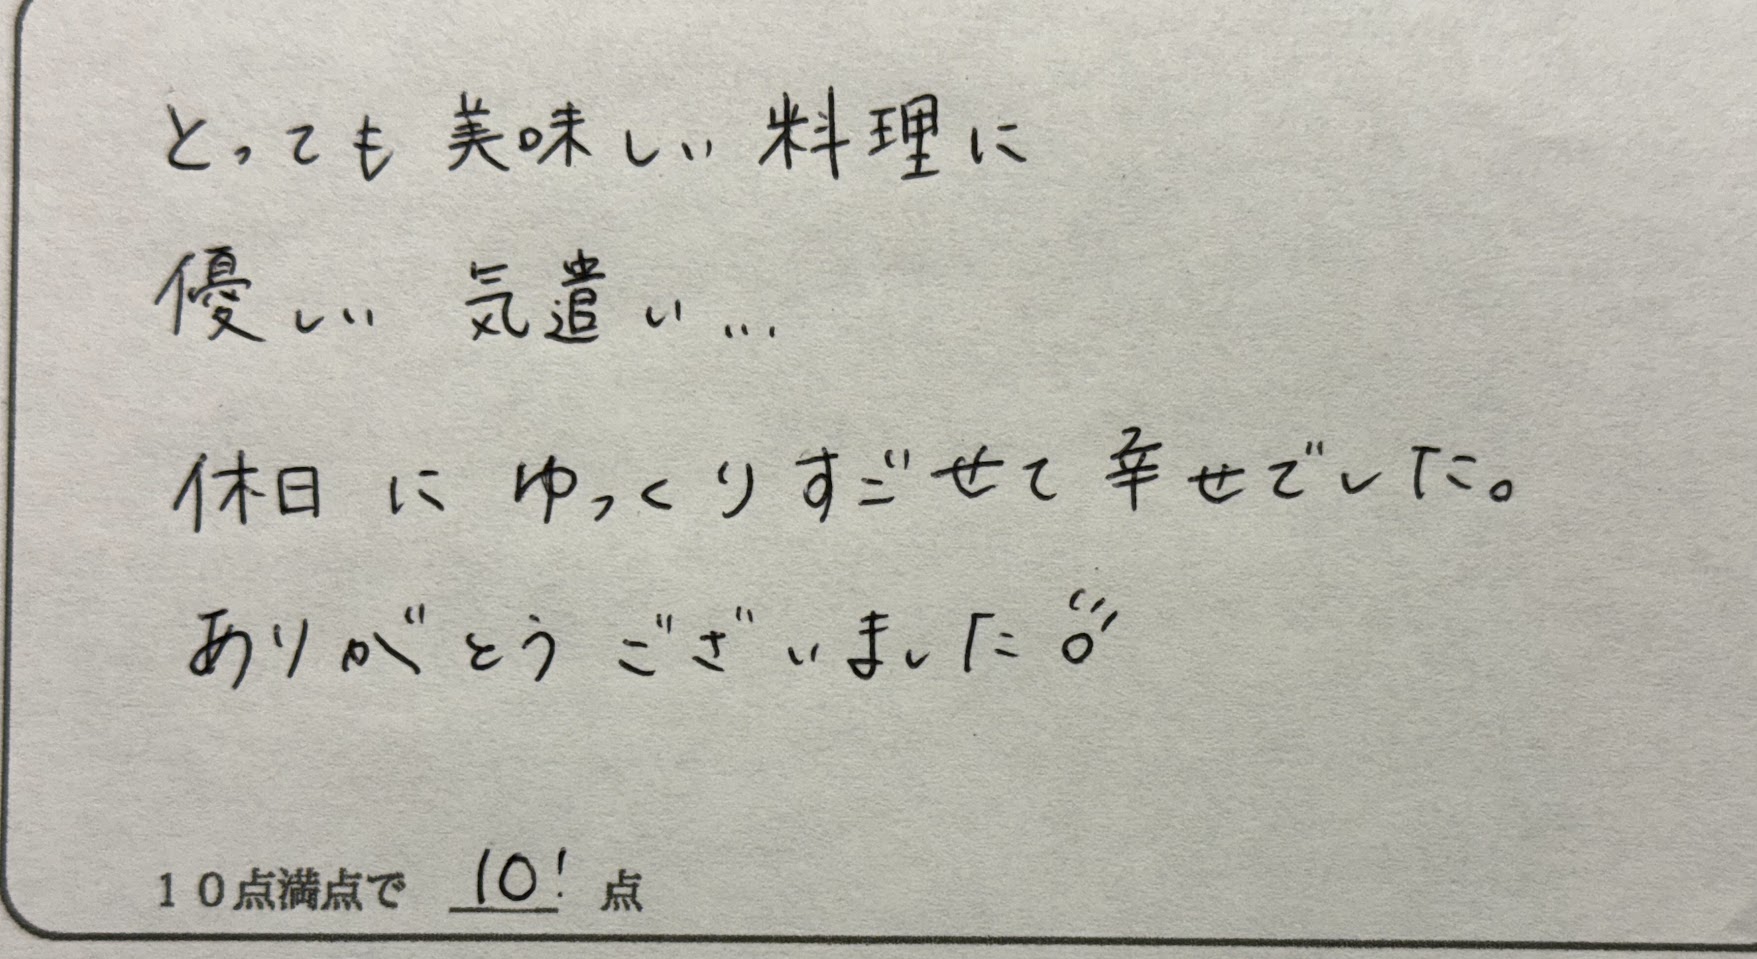 とっても美味しい料理に
優しい気遣い...
休日にゆっくりすごせて幸せでした。
ありがとうございました
10点満点で 10! 点